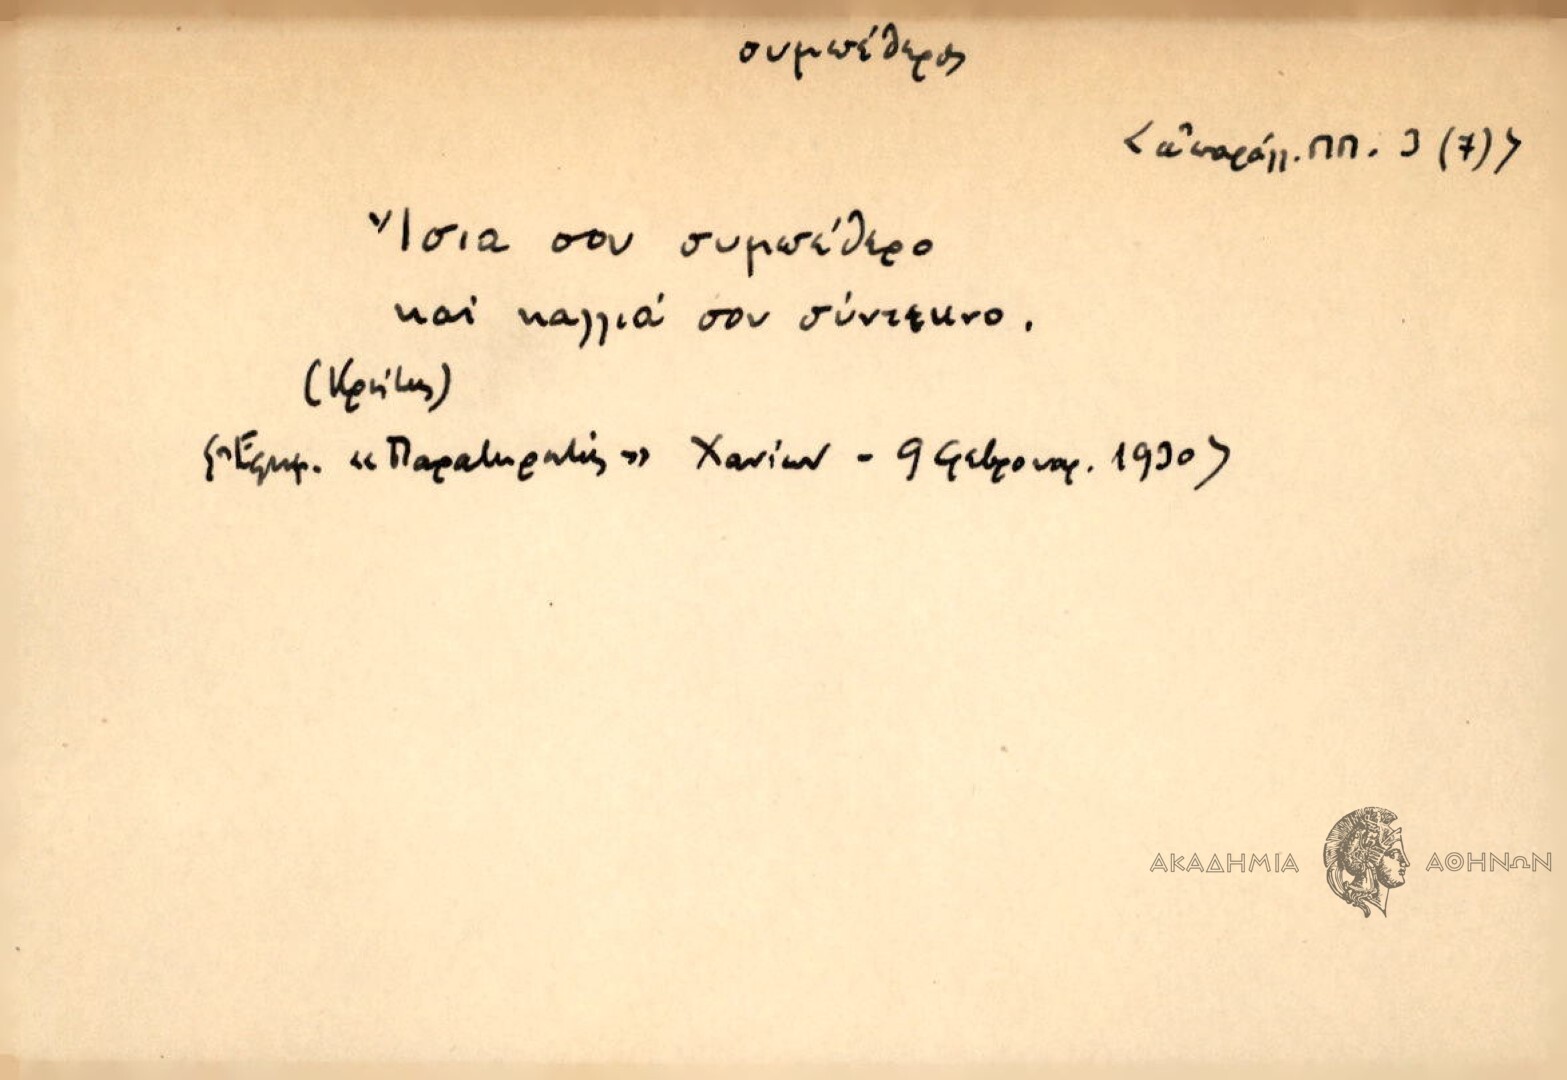 συμπέθερος
<α' παράλλ. ΠΠ. 3 (7)>
Ἴσια σου συμπέθερο
καί καλλιά σου σύντεκνο.
(Κρήτης)
<Ἐφημ. «Παρατηρητής» Χανίων - 9 Φεβρουαρ. 1930>
ΑΚΑΔΗΜΙΑ ΑΘΗΝΩΝ